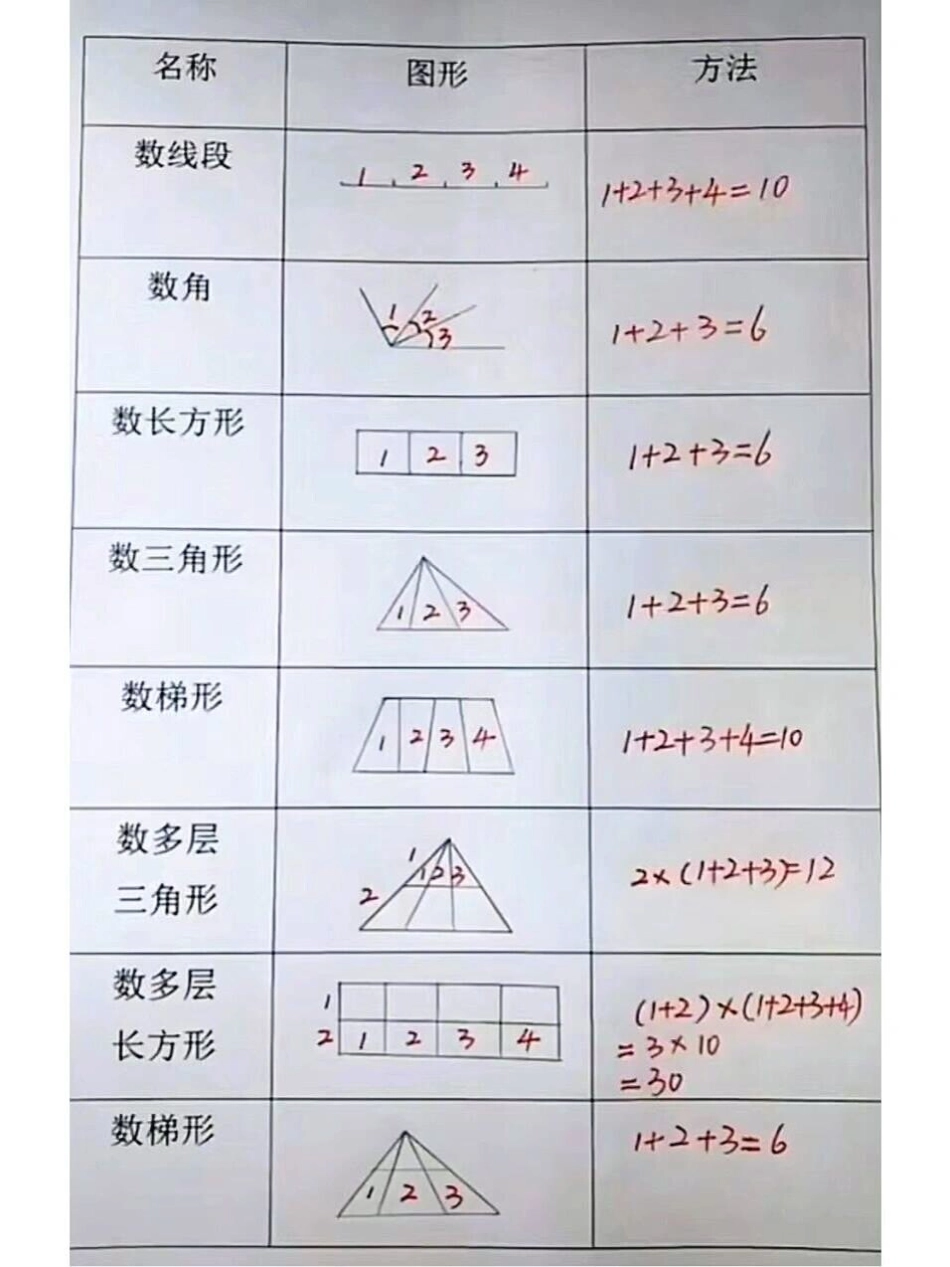 名称 图形 方法
数线段
1 2 3 4
1+2+3+4=10
数角
1 2 3
1+2+3=6
数长方形
1 2 3
1+2+3=6
数三角形
1 2 3
1+2+3=6
数梯形
1 2 3 4
1+2+3+4=10
数多层
三角形
1
1 2 3
2
2×(1+2+3)=12
数多层
长方形
1
2 1 2 3 4
(1+2)×(1+2+3+4)
=3×10
=30
数梯形
1 2 3
1+2+3=6